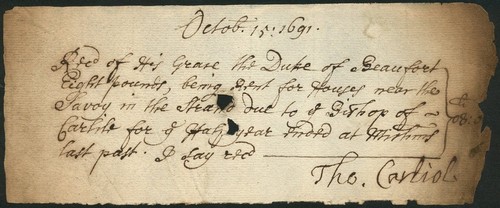 Octob. 15: 1691.
Recd of His Grace the Duke of Beaufort
Eight pounds, being Rent for Houses near the
Savoy in the Strand due to ye Bishop of
Carlile for ye Half year ended at Michms
last past. I say recd
08:
Tho. Carliol